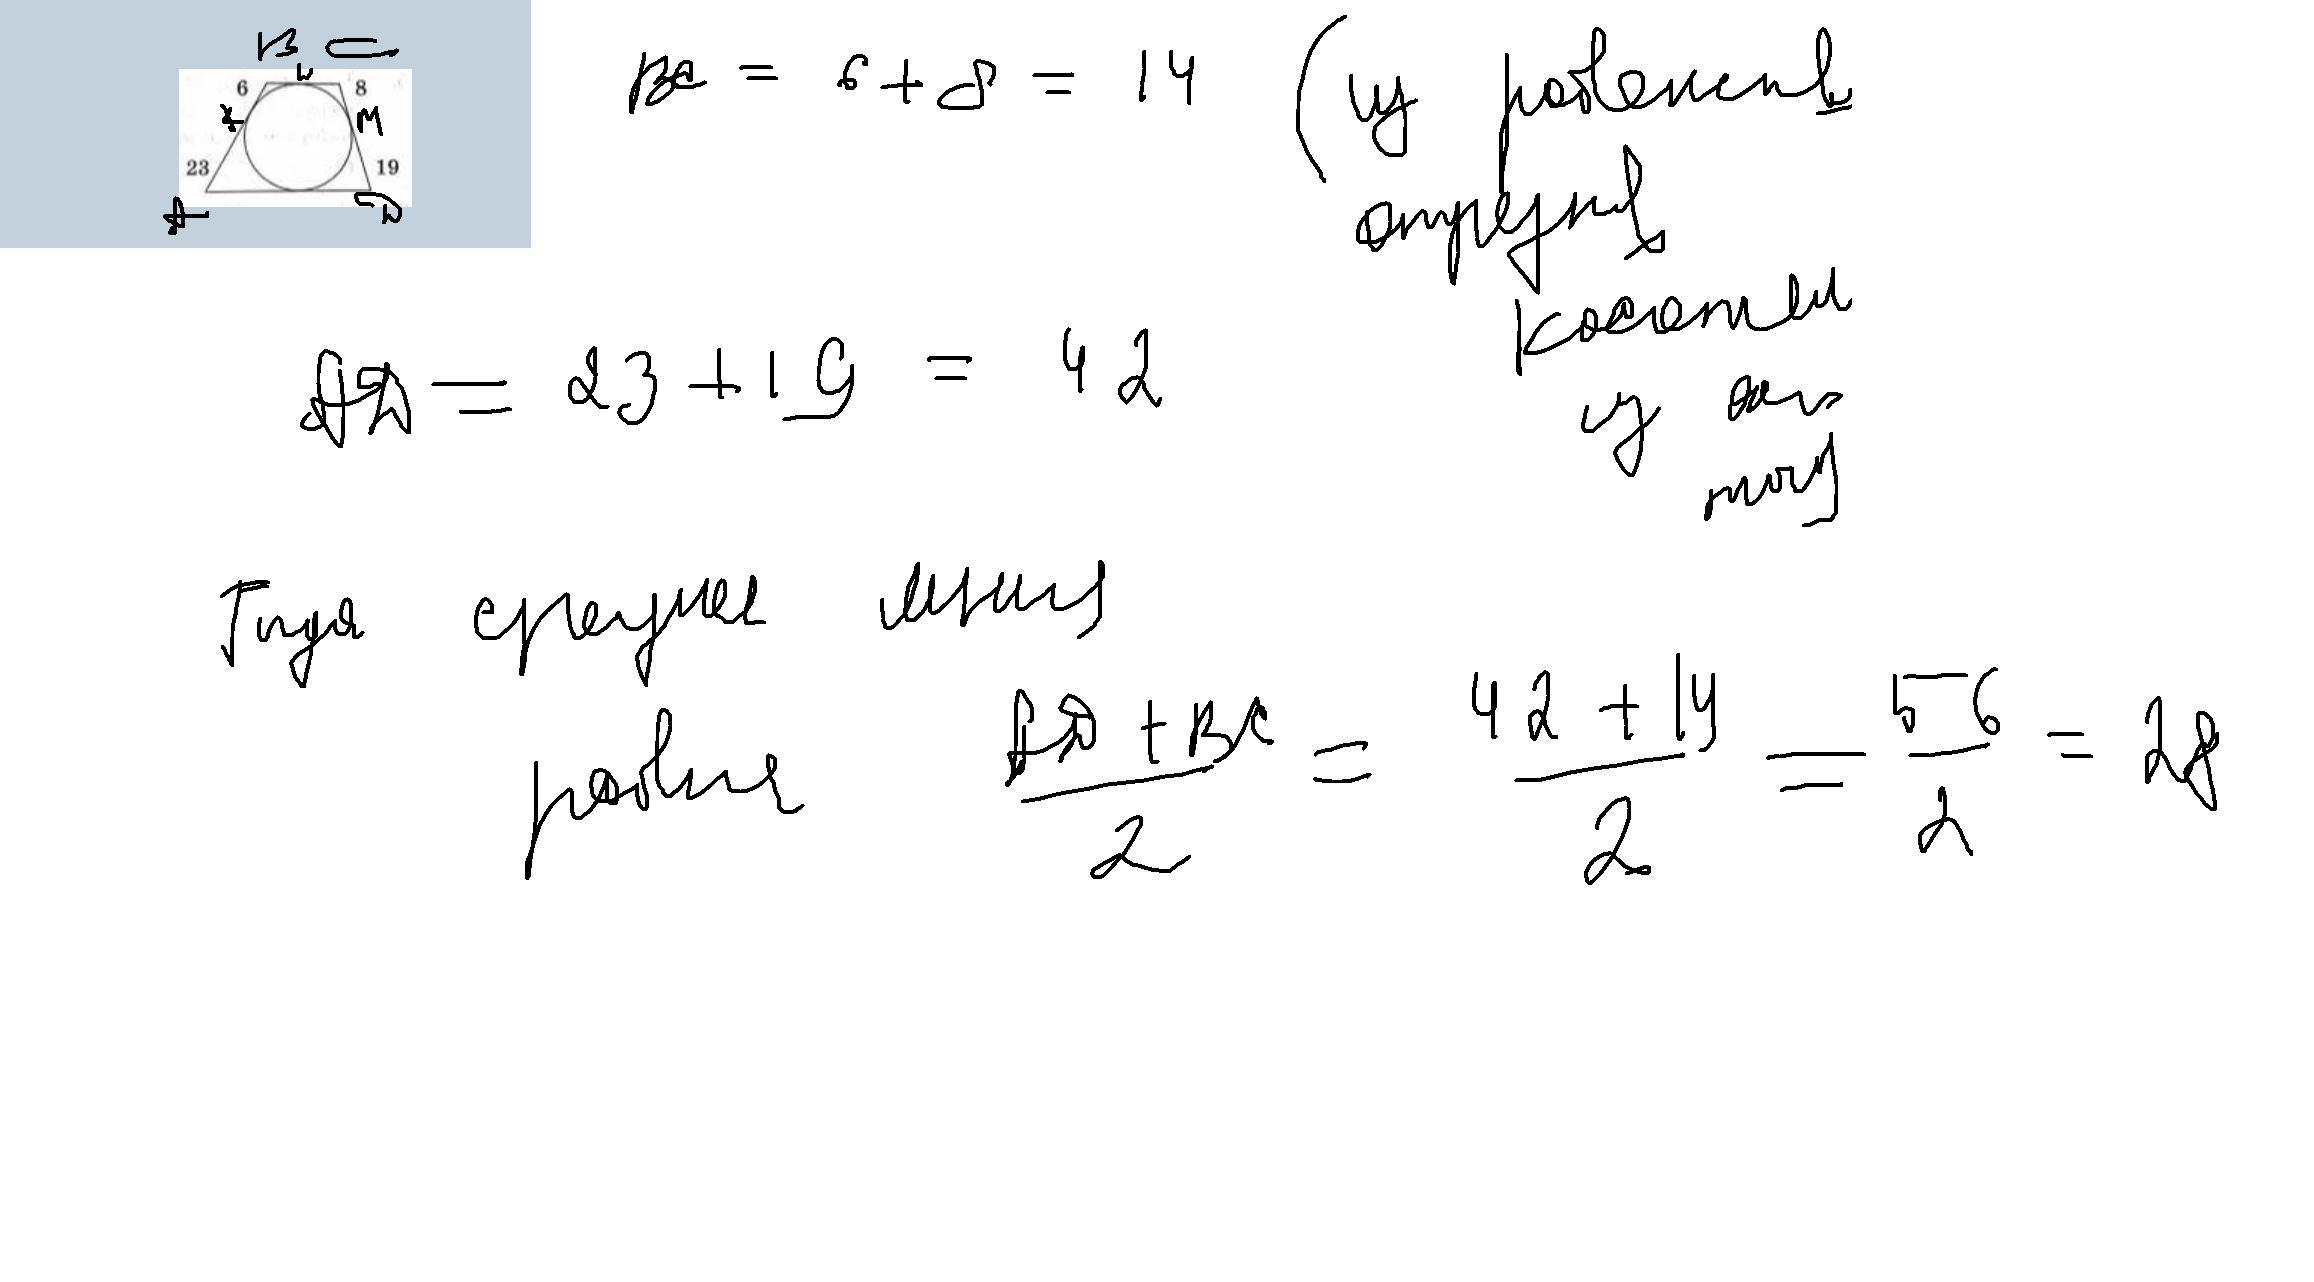 B C
6 8
K M
23 19
A D
BC = 6 + 8 = 14 (из равенств
отрезков
касател
из
точ
AD = 23 + 19 = 42
Тогда средняя линия
равна AD + BC / 2 = 42 + 14 / 2 = 56 / 2 = 28